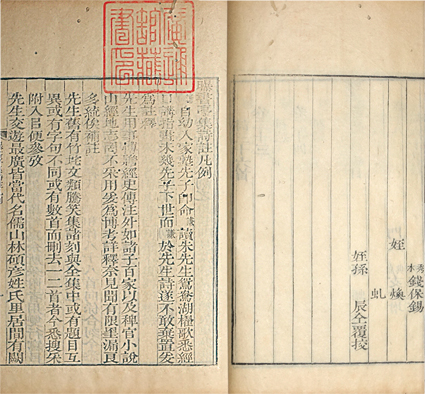 秀水錢保錫
姪煥
虬
姪孫 辰仝覆挍
曝書亭集詩註凡例
自幼入家塾先子卽命謙讀朱先生鴛鴦湖櫂歌悉經
口講指畫未幾先子下世而謙於先生詩遂不敢棄置爰
爲註釋
先生用事博贍經史傳注外如諸子百家以及稗官小說
山經地志罔不采用爰爲博考詳釋奈見聞有限罣漏良
多統俟補註
先生舊有竹垞文類騰笑集諸刻與全集中或有題目互
異或有字句不同或有數首而刪去一二首者今悉搜采
附入㠯便參攷
先生交遊最廣皆當代名儒山林碩彥姓氏里居間有闕